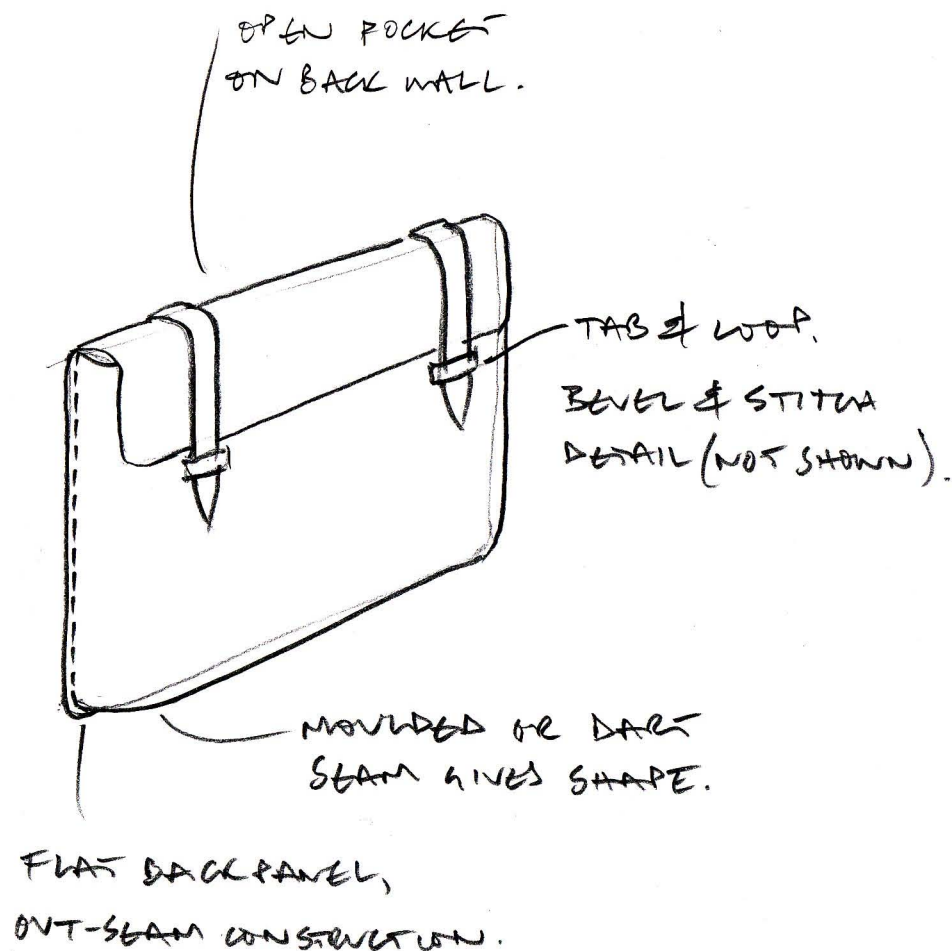 OPEN POCKET
ON BACK WALL.
TAB & LOOP.
BEVEL & STITCH
DETAIL (NOT SHOWN).
MOULDED OR DART
SEAM GIVES SHAPE.
FLAT BACK PANEL,
OUT-SEAM CONSTRUCTION.